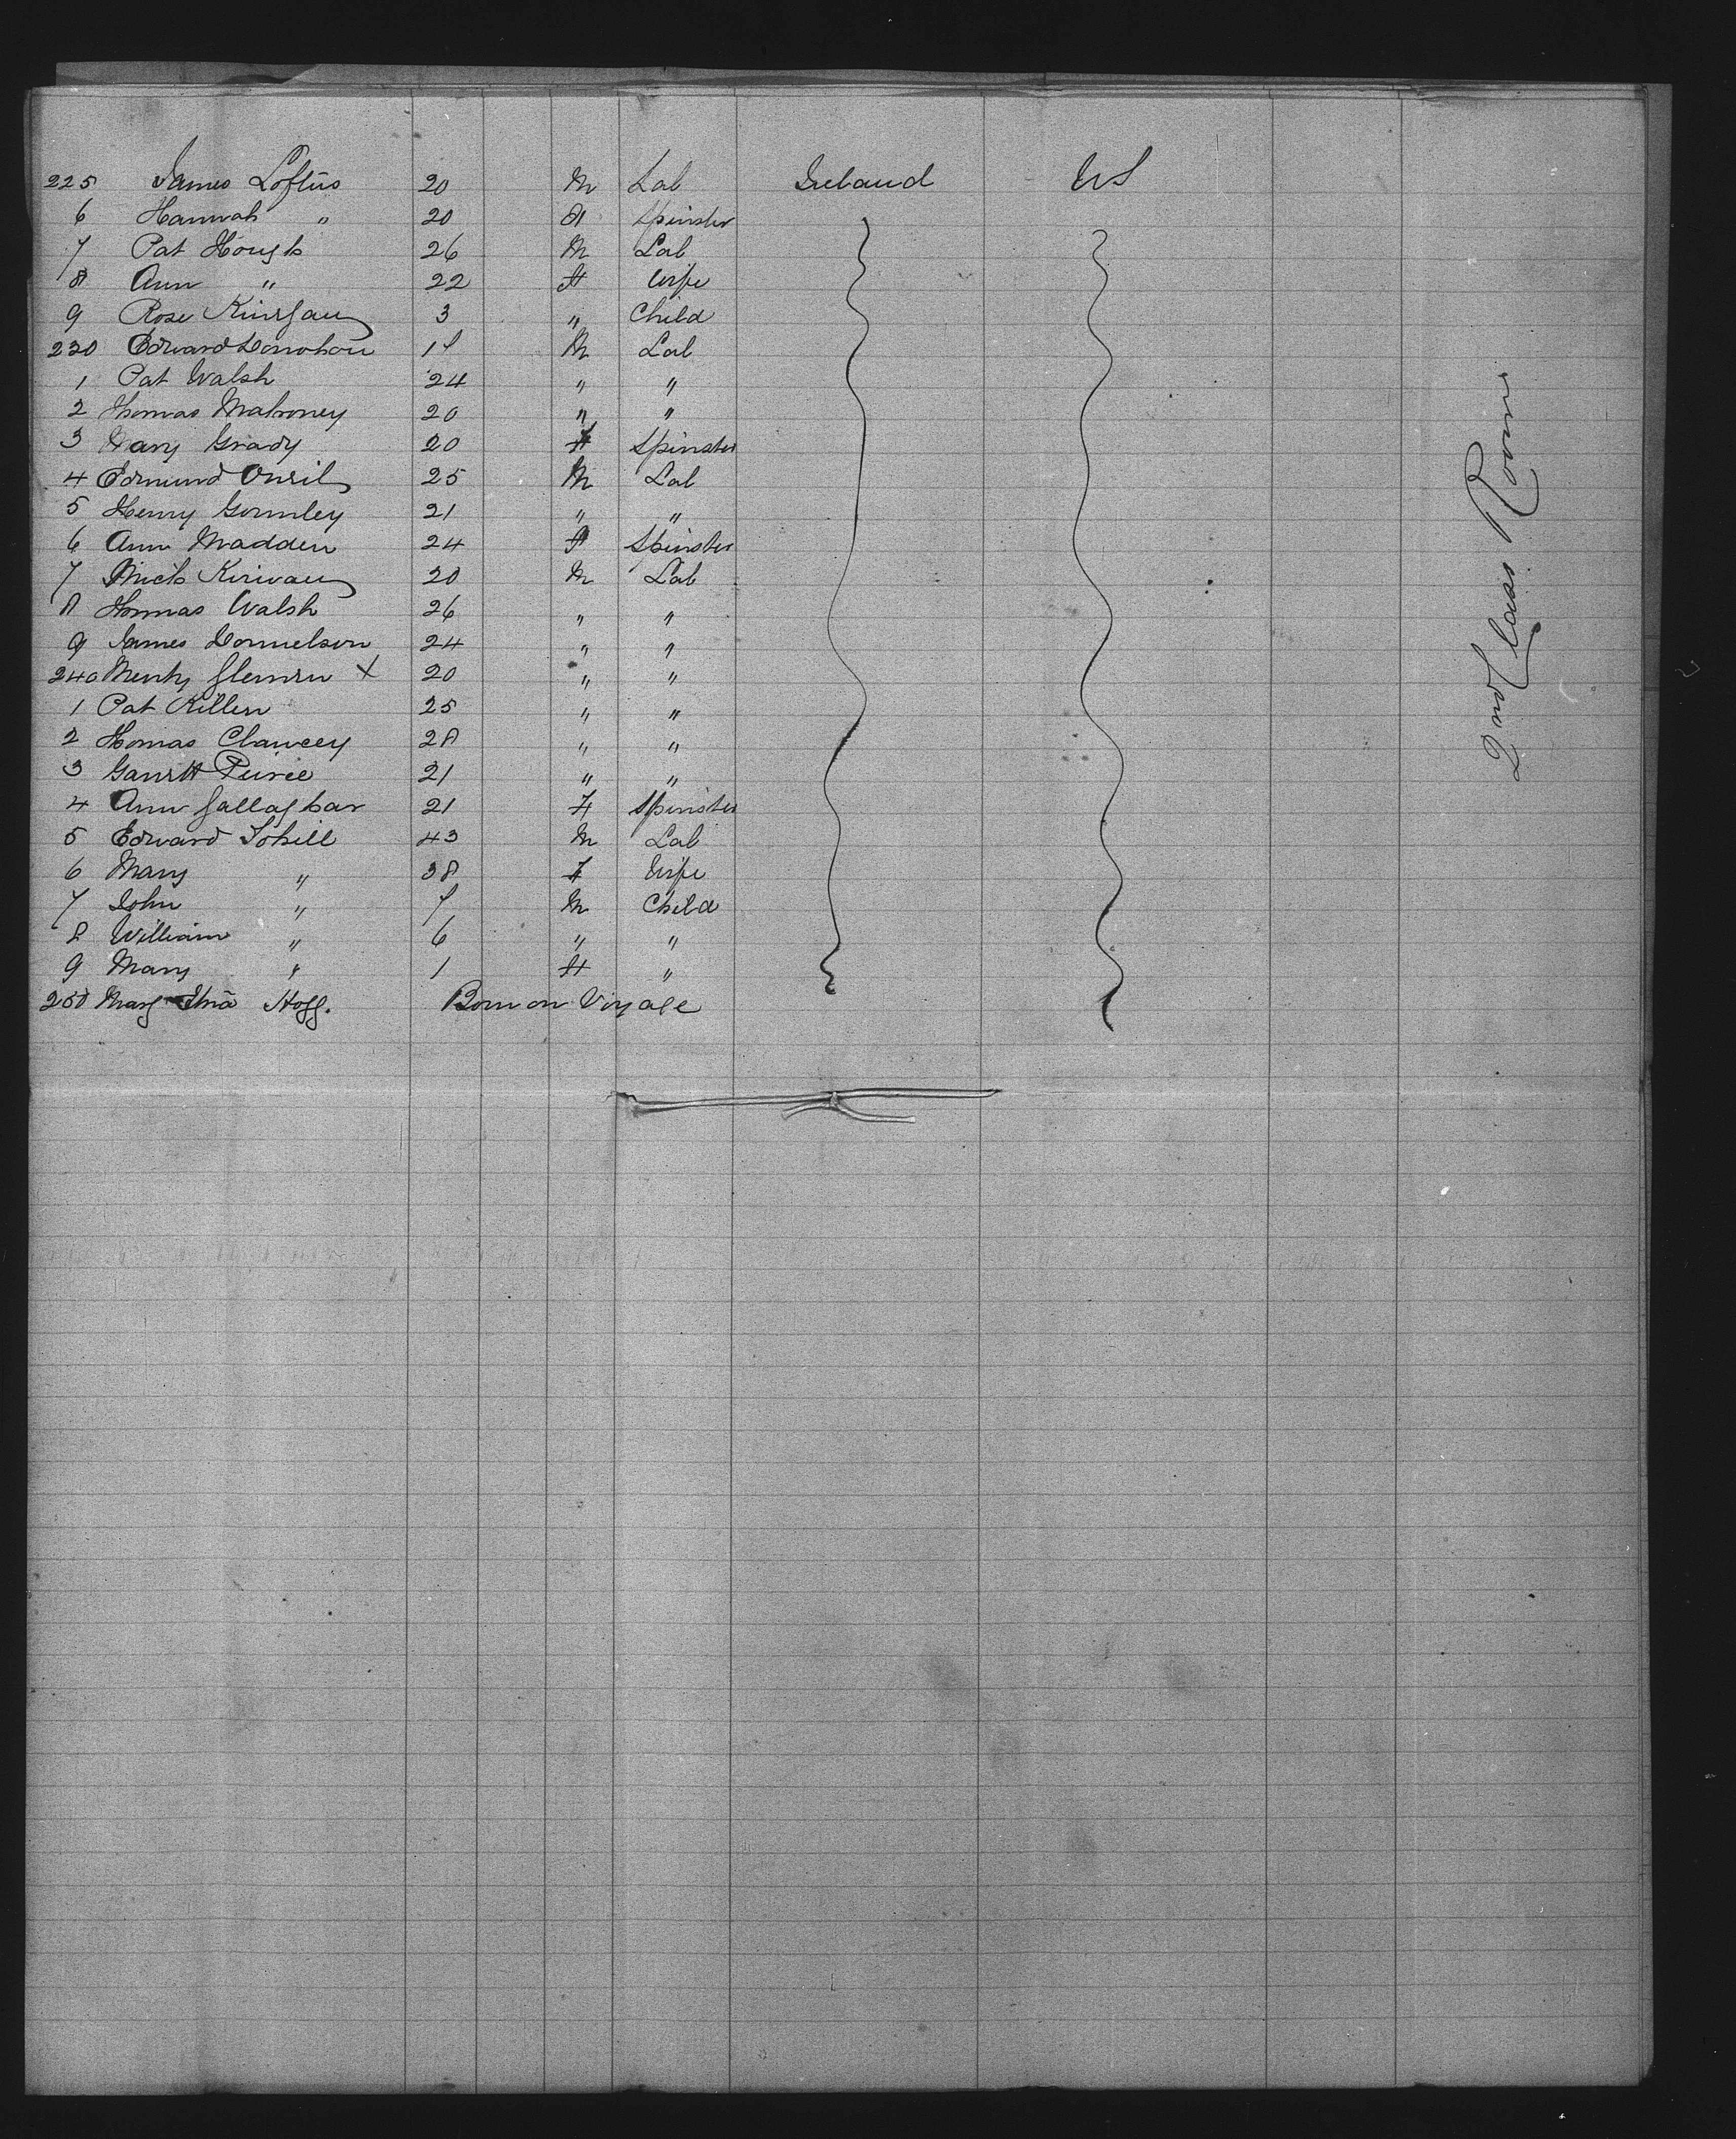 225 James Loftus 20 M Lab Ireland US
6 Hannah " 20 F Spinster
7 Pat Hough 26 M Lab
8 Ann " 22 F Wife
9 Rose 3 " Child
230 Edward Donohou M Lab
1 Pat Walsh 24 " "
2 Thomas Mahoney 20 " "
3 Mary Grady 20 F Spinster
4 Edmund 25 M Lab
5 Henry Gormley 21 " "
6 Ann Madden 24 F Spinster
7 Mich Kirivan 20 M Lab
8 Thomas Walsh 26 " "
9 James Donnelson 24 " "
240 X 20 " "
1 Pat Killen 25 " "
2 Thomas Clancey 28 " "
3 Garrett 21 " "
4 Ann Gallaghar 21 F Spinster
5 Edward 43 M Lab
6 Mary " 38 F Wife
7 John " 7 M Child
8 William " 6 " "
9 Mary " 1 F "
250 Mary Hogg. Born on Voyage
2nd Class Rooms